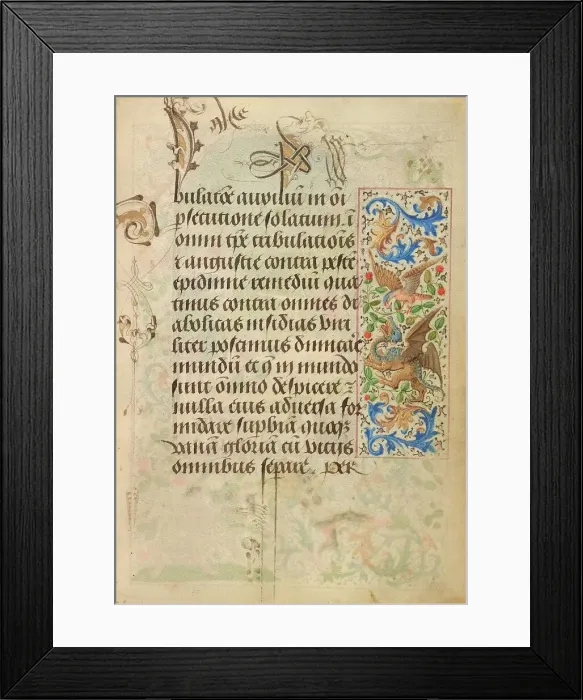 bulatõe auxiliũ in oi
psecutione solatium. ĩ
omni tp̃e tribulatiõis
⁊ angustie contra peste
epidimie remediũ qua
tinus contra omnes di
abolicas insidias viri
liter possimus dimicare
mundũ et q̃ in mundo
sunt om̃no despicere ⁊
nulla eius adversa for
midare supbiã quoqꝫ
vanã gloriã cũ vicijs
omnibus separe. per